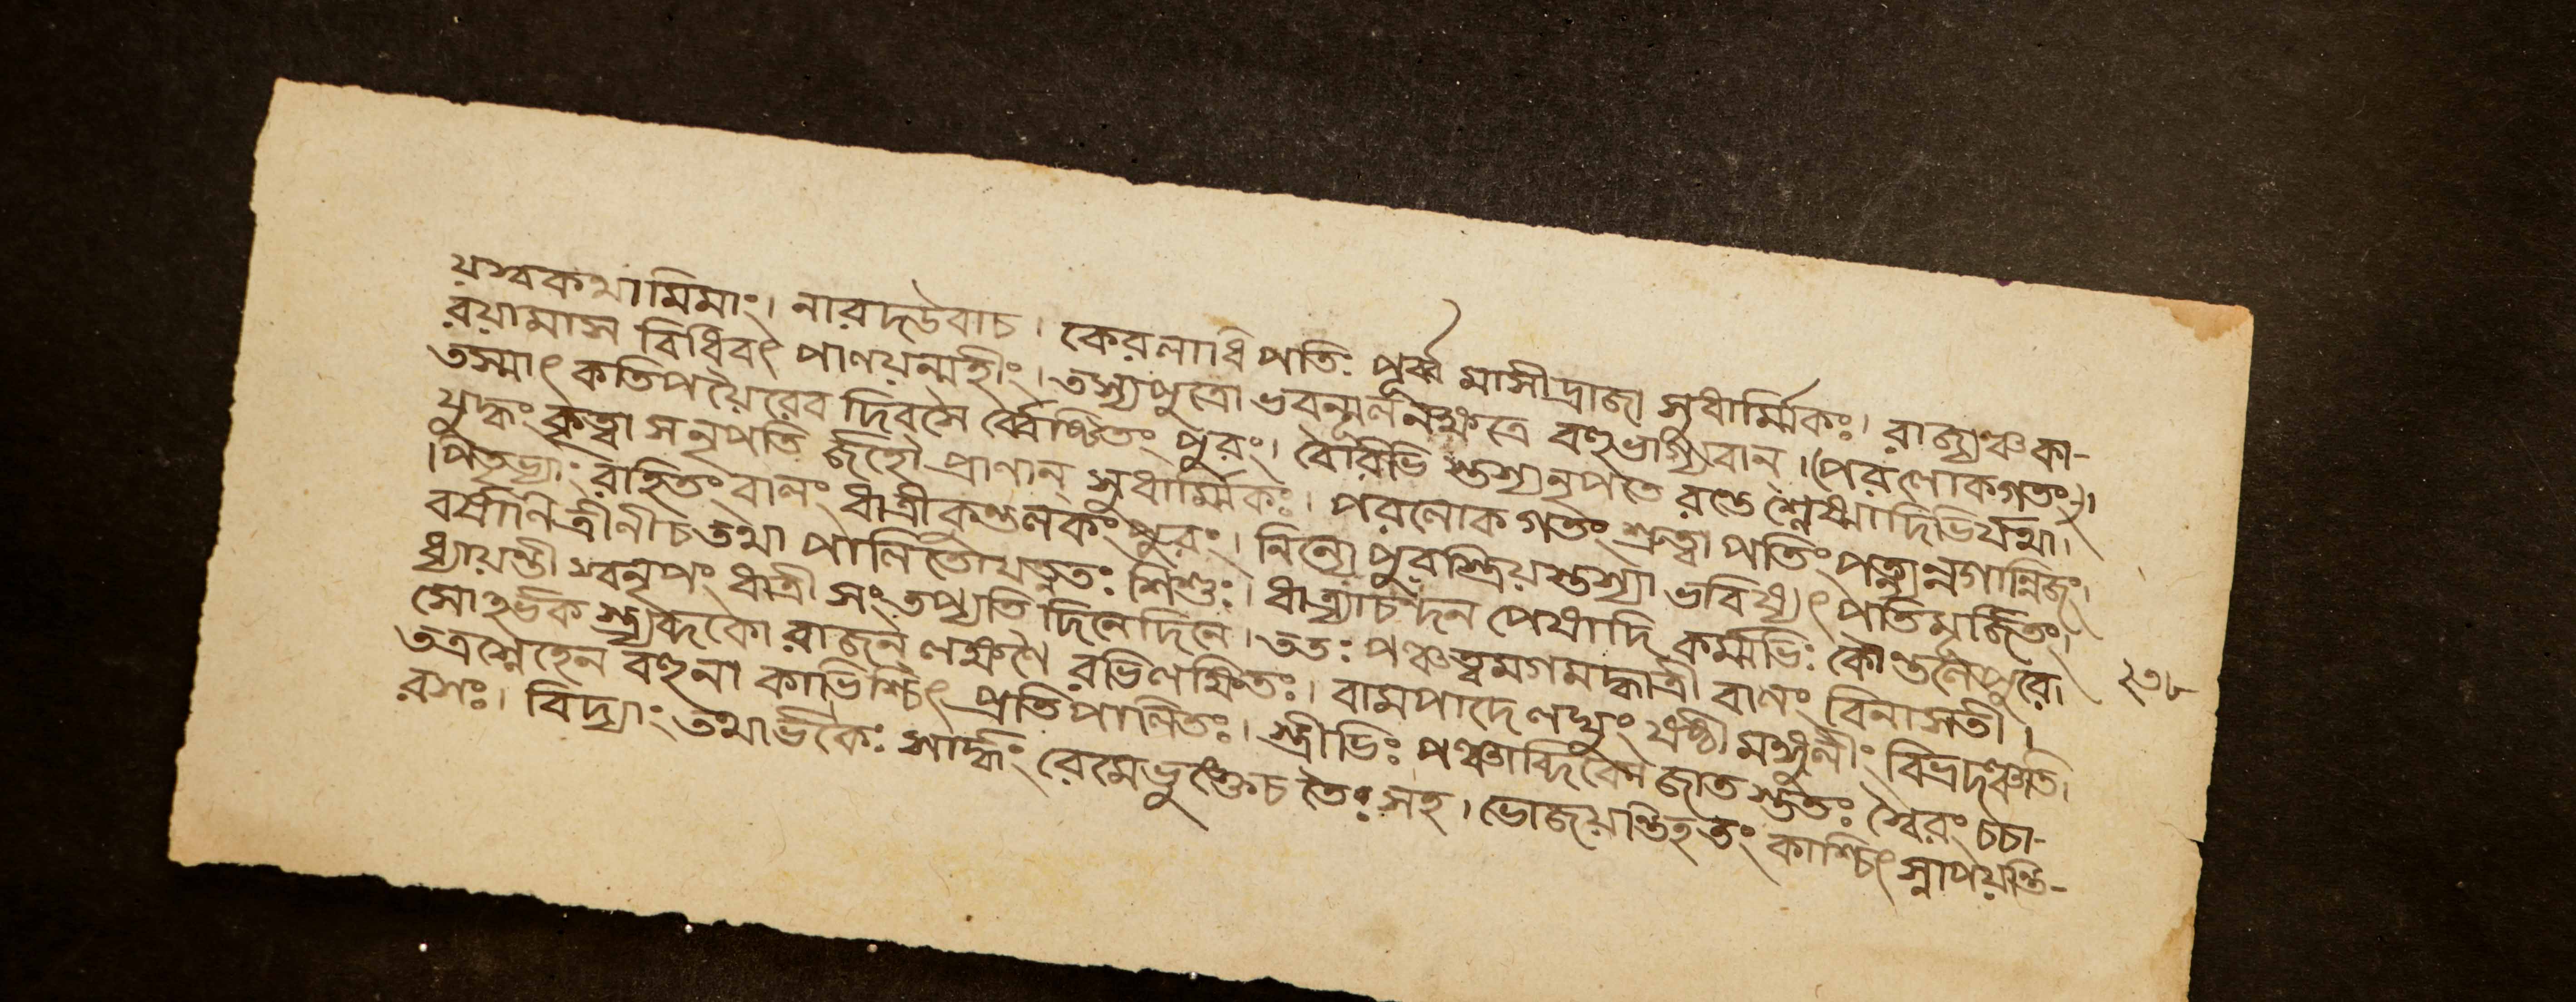 যশ্বকথামিমাং। নারদউবাচ। কেরলাধিপতিঃ পূর্ব্ব মাসীদ্রাজা সুধার্ম্মিকঃ। রাজ্যঞ্চকা-
রয়ামাস বিধিবৎ পাণয়ন্মহীং। তস্যপুত্রো ভবন্মূলনক্ষত্রে বহুভাগ্যবান্। (পরলোকগতং)।
তস্মাৎ কতিপয়ৈরেব দিবসৈ র্ব্বেষ্টিতং পুরং। বৈরিভি স্তস্যনৃপতে রণ্ডে শ্লেষ্মাদিভির্যথা।
যুদ্ধং কৃত্বা সনৃপতি র্জহৌ প্রাণান্ সুধার্ম্মিকঃ। পরলোক গতং শ্রুত্বা পতিং পত্ন্যন্নগান্নিজং।
।পিতৃভ্যাং রহিতং বালং ধাত্রীকুণ্ডলকং পুরং। নিন্যে পুরস্ত্রিয়স্তস্যা ভবিষ্যৎ পতিমূর্জিতং।
বর্ষাণিত্রীনীচতথা পালিতোযত্নতঃ শিশুঃ। ধাত্র্যাচন্দন পেষাদি কর্ম্মভিঃ কৌণ্ডলেপুরে।
ধ্যায়ন্তী স্বনৃপং ধাত্রী সংতপ্যতি দিনেদিনে। ততঃ পঞ্চত্বমগমদ্ধাত্রী বালং বিনাসতী।
২৩৮
সোঽর্ভক স্ত্র্যব্দকো রাজন্ লক্ষণৈ রভিলক্ষিতঃ। বামপাদেলঘুং ষষ্ঠী মঙ্গুলীং বিভ্রদঞ্চতি।
তত্রস্নেহেন বহুনা কাভিশ্চিৎ প্রতিপালিতঃ। স্ত্রীভিঃ পঞ্চাব্দিকো জাত স্ততঃ স্বৈরং চচা-
রসঃ। বিদ্যাং তথার্ভকৈঃ সার্দ্ধং রেমেভুঙ্ক্তেচ তৈঃ সহ। ভোজয়ন্তিহতং কাশ্চিৎ স্নাপয়ন্তি-